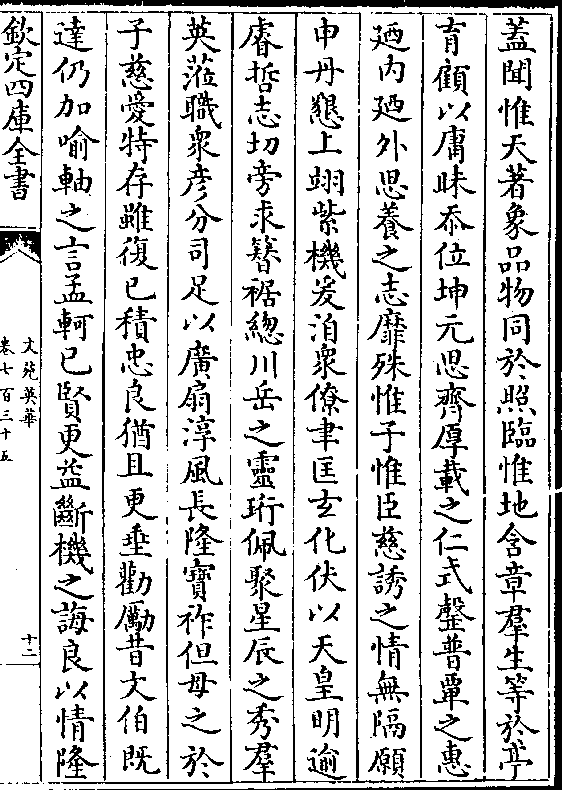 蓋聞惟天著象品物同於照臨惟地含章羣生等於亭
育顧以庸昧忝位坤元思齊厚載之仁式罄普覃之惠
廼內廼外思養之志靡殊惟子惟臣慈誘之情無隔願
申丹懇上翊紫機爰洎衆僚聿匡玄化伏以天皇明逾
睿哲志切旁求簪裾總川岳之靈珩佩聚星辰之秀羣
英蒞職衆彦分司足以廣扇淳風長隆寳祚但母之於
子慈愛特存雖復已積忠良猶且更垂勸勵昔文伯既
達仍加喻軸之言孟軻已賢更益斷機之誨良以情隆
欽定四庫全書
文苑英華
卷七百三十五
十二